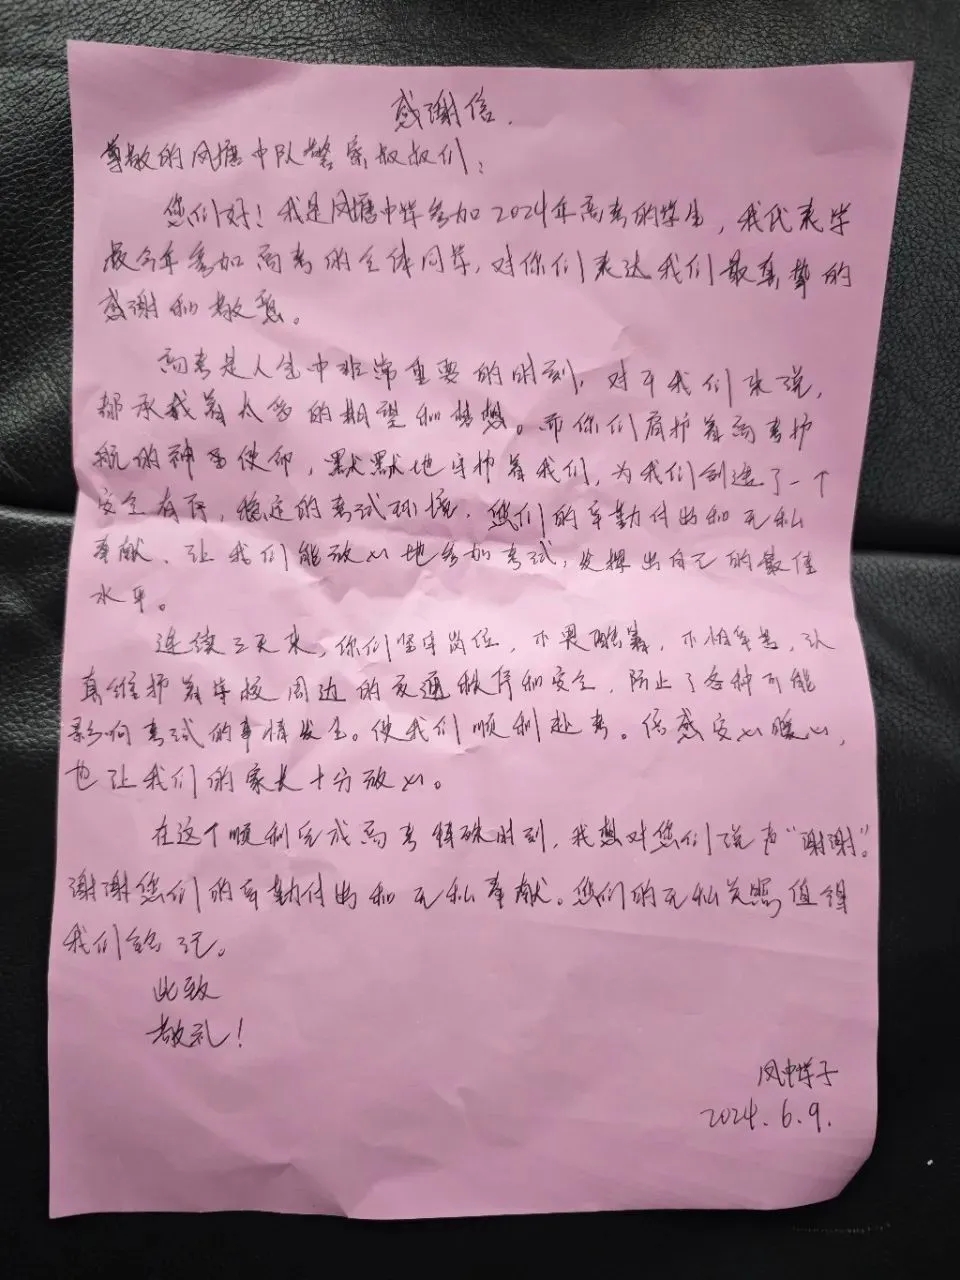 感谢信.
尊敬的凤塘中队警察叔叔们:
您们好!我是凤塘中学参加2024年高考的学生,我代表学
校今年参加高考的全体同学,对你们表达我们最真挚的
感谢和敬意。
高考是人生中非常重要的时刻,对于我们来说,
都承载着太多的期望和梦想。而你们肩护着高考护
航的神圣使命,默默地守护着我们,为我们创造了一个
安全有序,稳定的考试环境,您们的辛勤付出和无私
奉献、让我们能放心地参加考试,发挥出自己的最佳
水平。
连续三天来,你们坚守岗位,不畏酷暑,不怕辛苦,认
真维护着学校周边的交通秩序和安全,防止了各种可能
影响考试的事情发生。使我们顺利赴考。倍感安心暖心,
也让我们的家长十分放心。
在这个顺利完成高考特殊时刻,我想对您们说声“谢谢”。
谢谢您们的辛勤付出和无私奉献。您们的无私关照值得
我们铭记。
此致
敬礼!
凤中学子
2024.6.9.